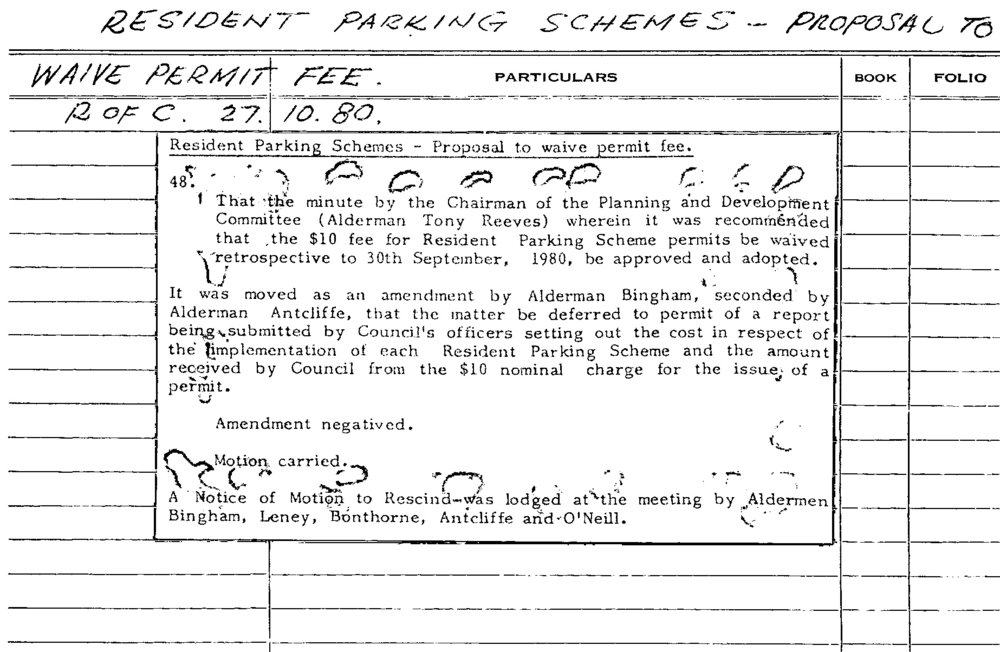 RESIDENT PARKING SCHEMES - PROPOSAL TO
WAIVE PERMIT FEE. PARTICULARS BOOK FOLIO
R OF C. 27. 10. 80.
Resident Parking Schemes - Proposal to waive permit fee.
48.
That the minute by the Chairman of the Planning and Development
Committee (Alderman Tony Reeves) wherein it was recommended
that the $10 fee for Resident Parking Scheme permits be waived
retrospective to 30th September, 1980, be approved and adopted.
It was moved as an amendment by Alderman Bingham, seconded by
Alderman Antcliffe, that the matter be deferred to permit of a report
being submitted by Council's officers setting out the cost in respect of
the implementation of each Resident Parking Scheme and the amount
received by Council from the $10 nominal charge for the issue of a
permit.
Amendment negatived.
Motion carried.
A Notice of Motion to Rescind was lodged at the meeting by Aldermen
Bingham, Leney, Bonthorne, Antcliffe and O'Neill.